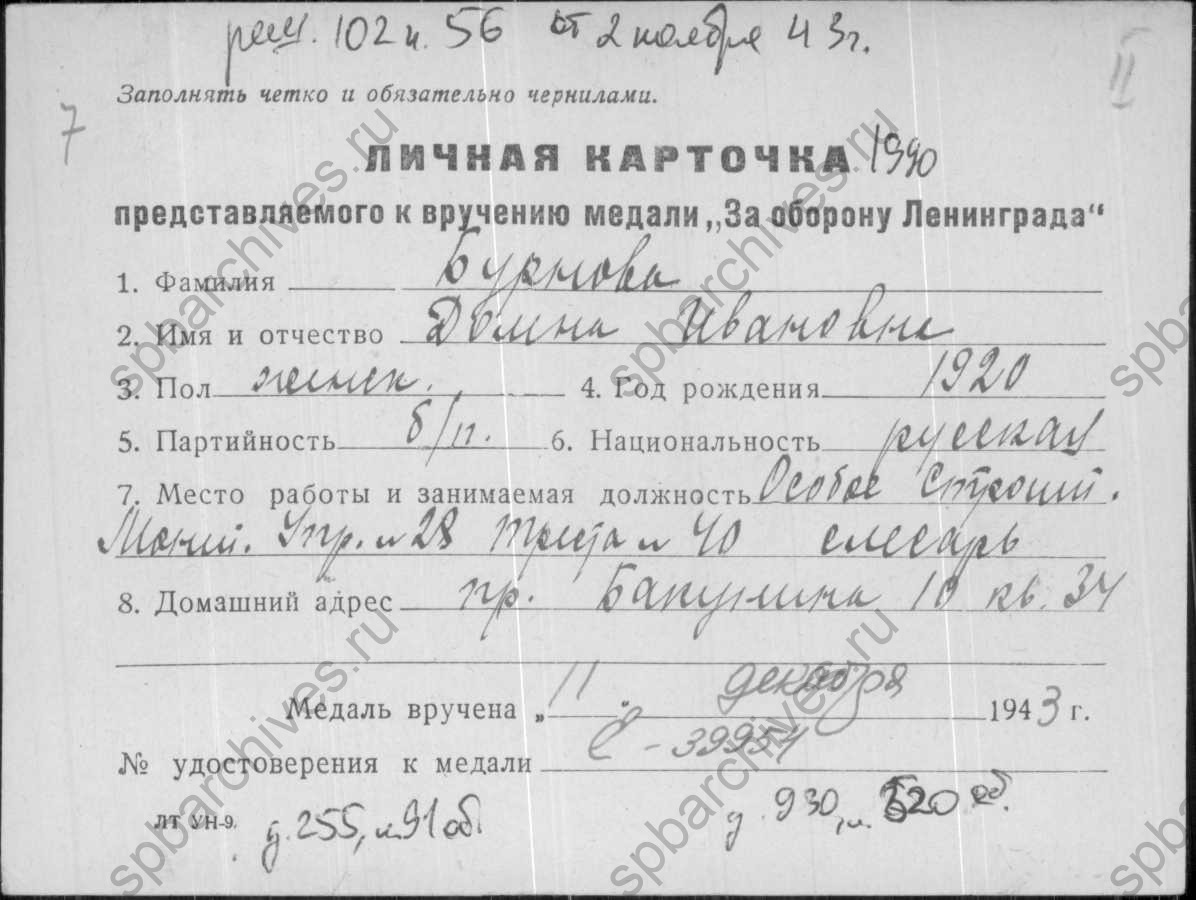 реш. 102 п. 56 от 2 ноября 43 г.
Заполнять четко и обязательно чернилами.
7
II
ЛИЧНАЯ КАРТОЧКА 1990
представляемого к вручению медали „За оборону Ленинграда“
1. Фамилия
2. Имя и отчество Домна Ивановна
3. Пол женск. 4. Год рождения 1920
5. Партийность б/п. 6. Национальность русская
7. Место работы и занимаемая должность Особое Строит.
Монт. Упр. № 28 Треста № 40 слесарь
8. Домашний адрес пр. Бакунина 10 кв. 34
Медаль вручена „ 11 “ декабря 1943 г.
№ удостоверения к медали 39954
ЛТ УН-9. д. 255, л. 91 об. д. 930, л. 520 об.
spbarchives.ru